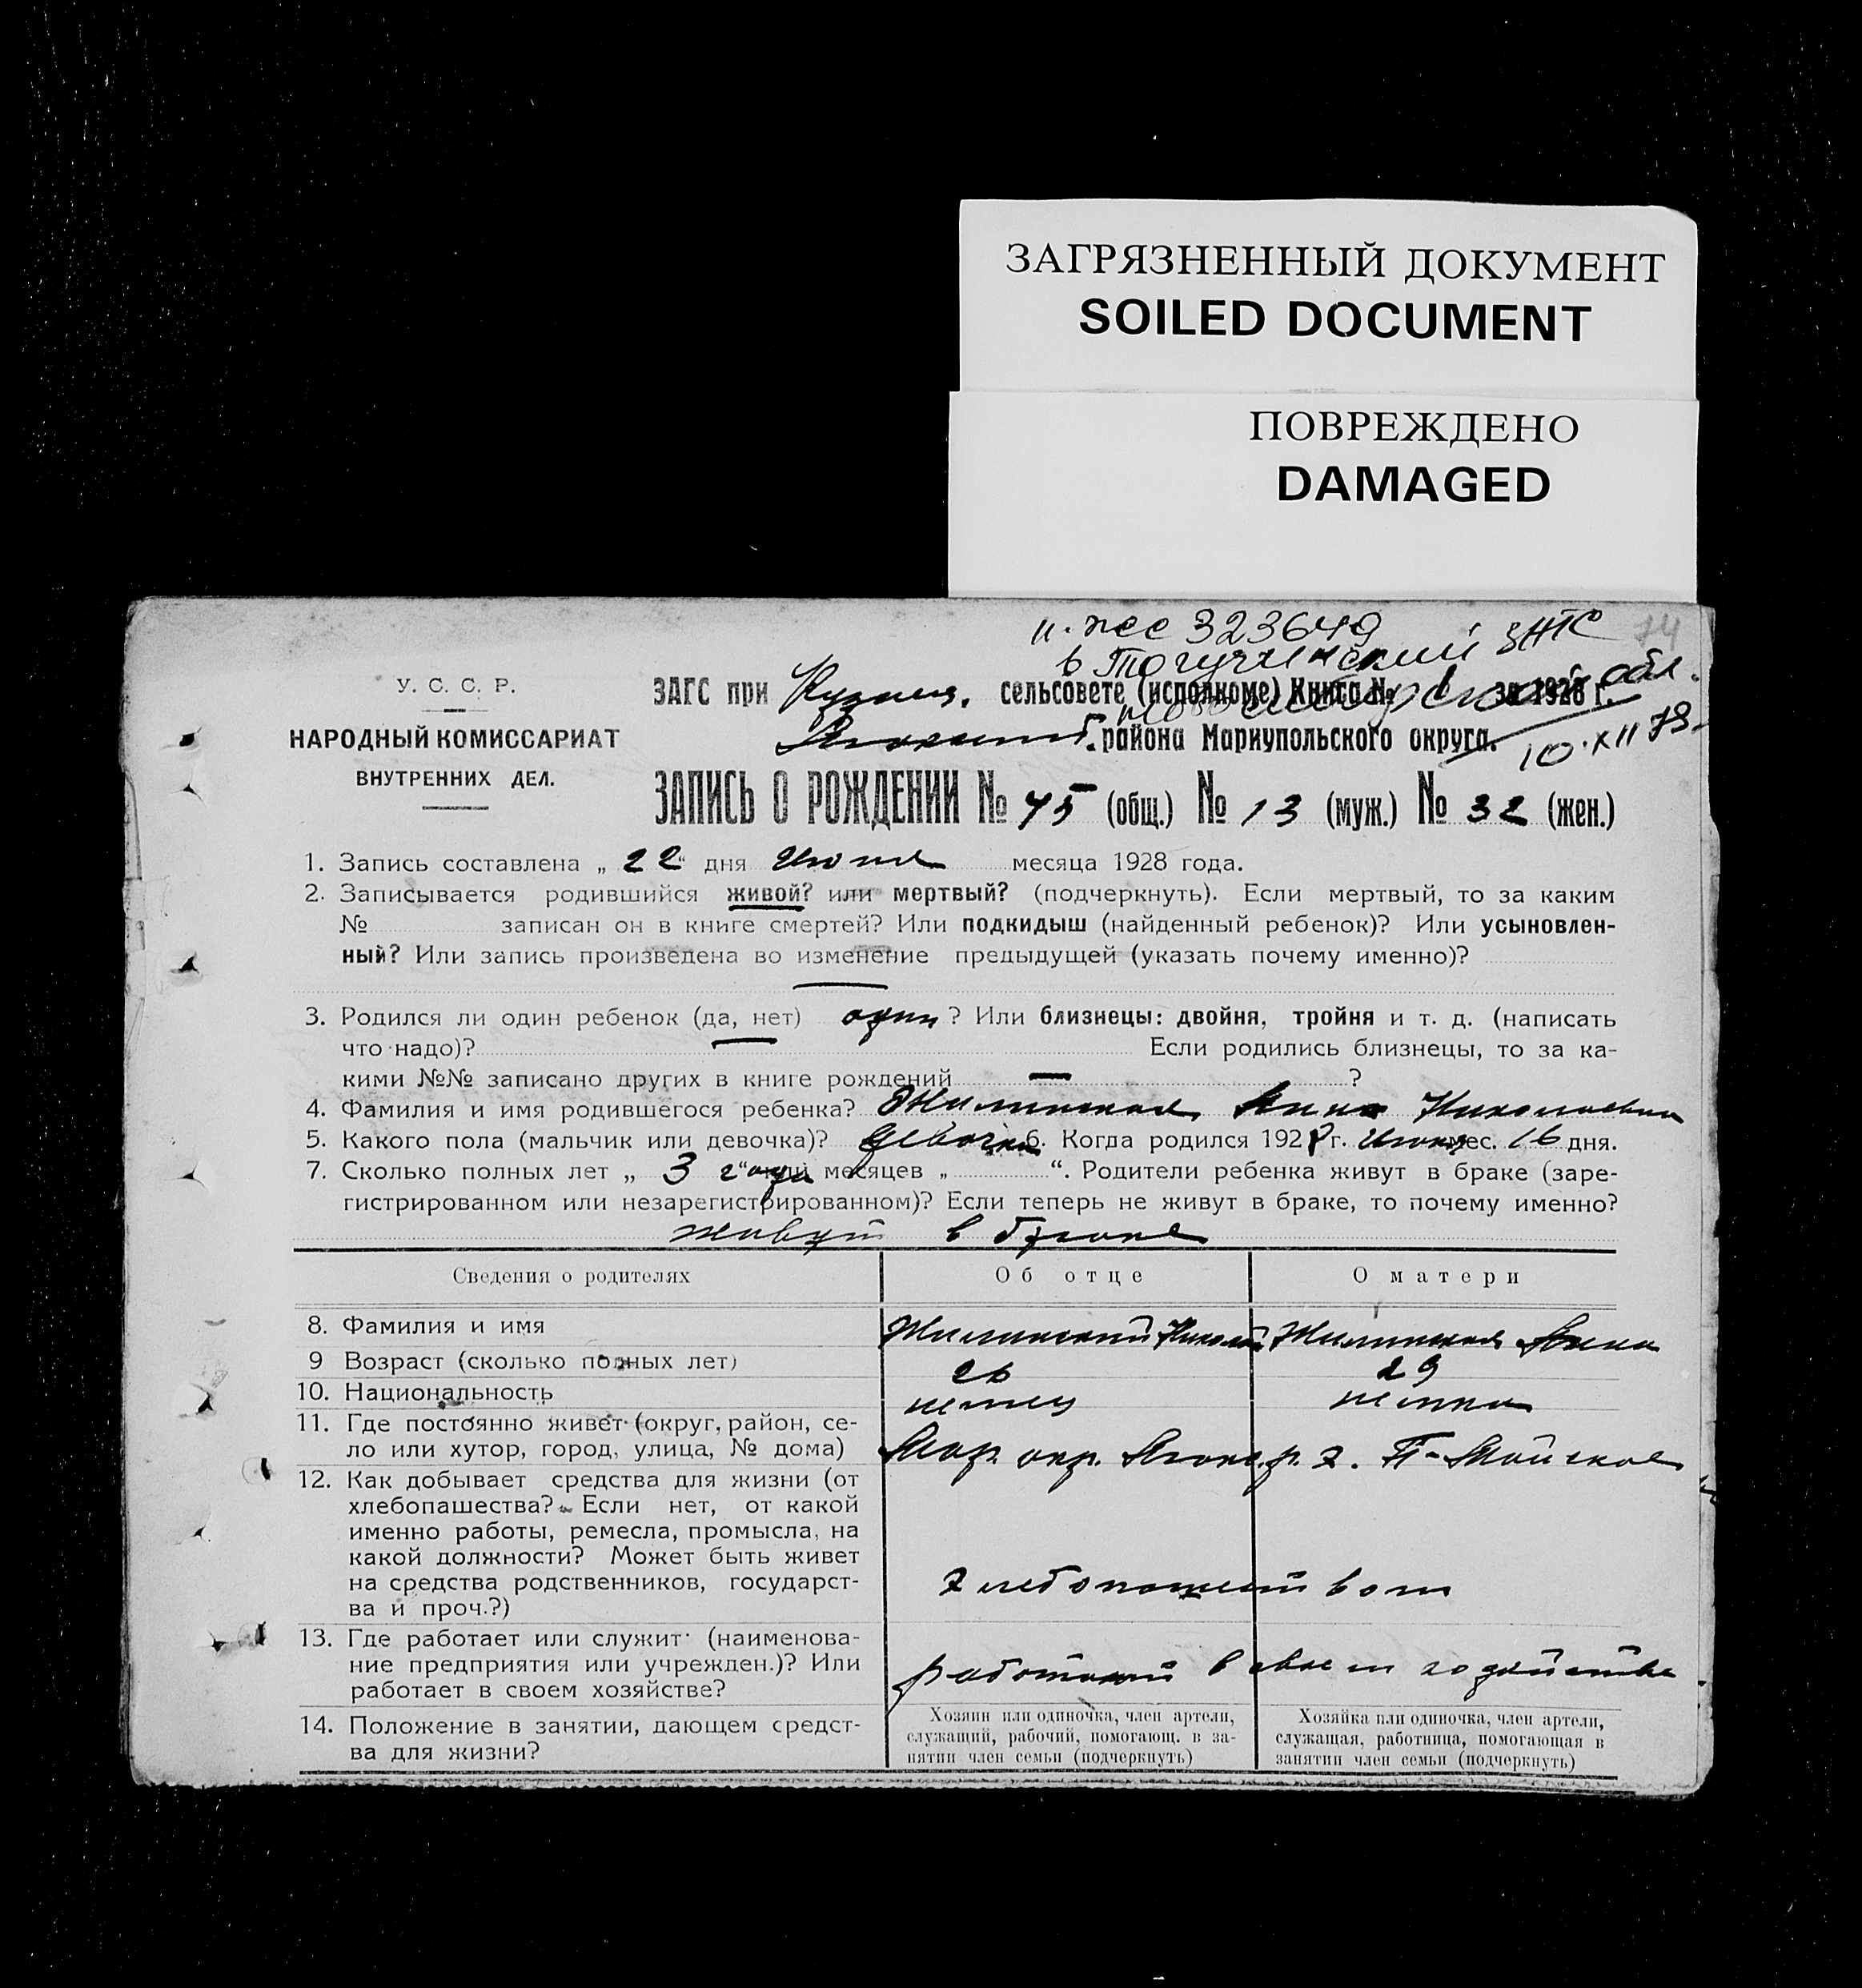 ЗАГРЯЗНЕННЫЙ ДОКУМЕНТ
SOILED DOCUMENT
ПОВРЕЖДЕНО
DAMAGED
323649
в Тогучинский ЗАГС
Новосибирской обл.
10.XII 79.
74
У. С. С. Р.
НАРОДНЫЙ КОМИССАРИАТ
ВНУТРЕННИХ ДЕЛ.
ЗАГС при Кузнец. сельсовете (исполкоме) Книга № 1 за 1928 г.
района Мариупольского округа.
ЗАПИСЬ О РОЖДЕНИИ № 45 (общ.) № 13 (муж.) № 32 (жен.)
1. Запись составлена „ 22 “ дня месяца 1928 года.
2. Записывается родившийся живой? или мертвый? (подчеркнуть). Если мертвый, то за каким
№ записан он в книге смертей? Или подкидыш (найденный ребенок)? Или усыновлен-
ный? Или запись произведена во изменение предыдущей (указать почему именно)?
—
3. Родился ли один ребенок (да, нет) один? Или близнецы: двойня, тройня и т. д. (написать
что надо)? — Если родились близнецы, то за ка-
кими №№ записано других в книге рождений — ?
4. Фамилия и имя родившегося ребенка? Жилинская Анна Николаевна
5. Какого пола (мальчик или девочка)? девочка 6. Когда родился 1928 г. мес. 16 дня.
7. Сколько полных лет „ 3 года “ или месяцев „ “. Родители ребенка живут в браке (заре-
гистрированном или незарегистрированном)? Если теперь не живут в браке, то почему именно?
живут в браке
Сведения о родителях Об отце О матери
8. Фамилия и имя Жилинский Николай Жилинская Анна
9 Возраст (сколько полных лет) 26 29
10. Национальность немец немка
11. Где постоянно живет (округ, район, се-
ло или хутор, город, улица, № дома) Мар. окр. р. х. П-Майское
12. Как добывает средства для жизни (от
хлебопашества? Если нет, от какой
именно работы, ремесла, промысла, на
какой должности? Может быть живет
на средства родственников, государст-
ва и проч.?) хлебопашеством
13. Где работает или служит (наименова-
ние предприятия или учрежден.)? Или
работает в своем хозяйстве? работают в своем хозяйстве
14. Положение в занятии, дающем средст-
ва для жизни?
Хозяин или одиночка, член артели,
служащий, рабочий, помогающ. в за-
нятии член семьи (подчеркнуть)
Хозяйка или одиночка, член артели,
служащая, работница, помогающая в
занятии член семьи (подчеркнуть)